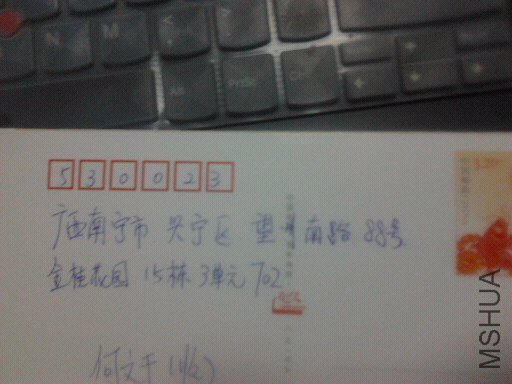 N M < >
Alt PrtSc Ctrl
530023
广西南宁市 兴宁区 望州南路 88号
金桂花园 15栋 3单元 702
何文千(收)
MSHUA